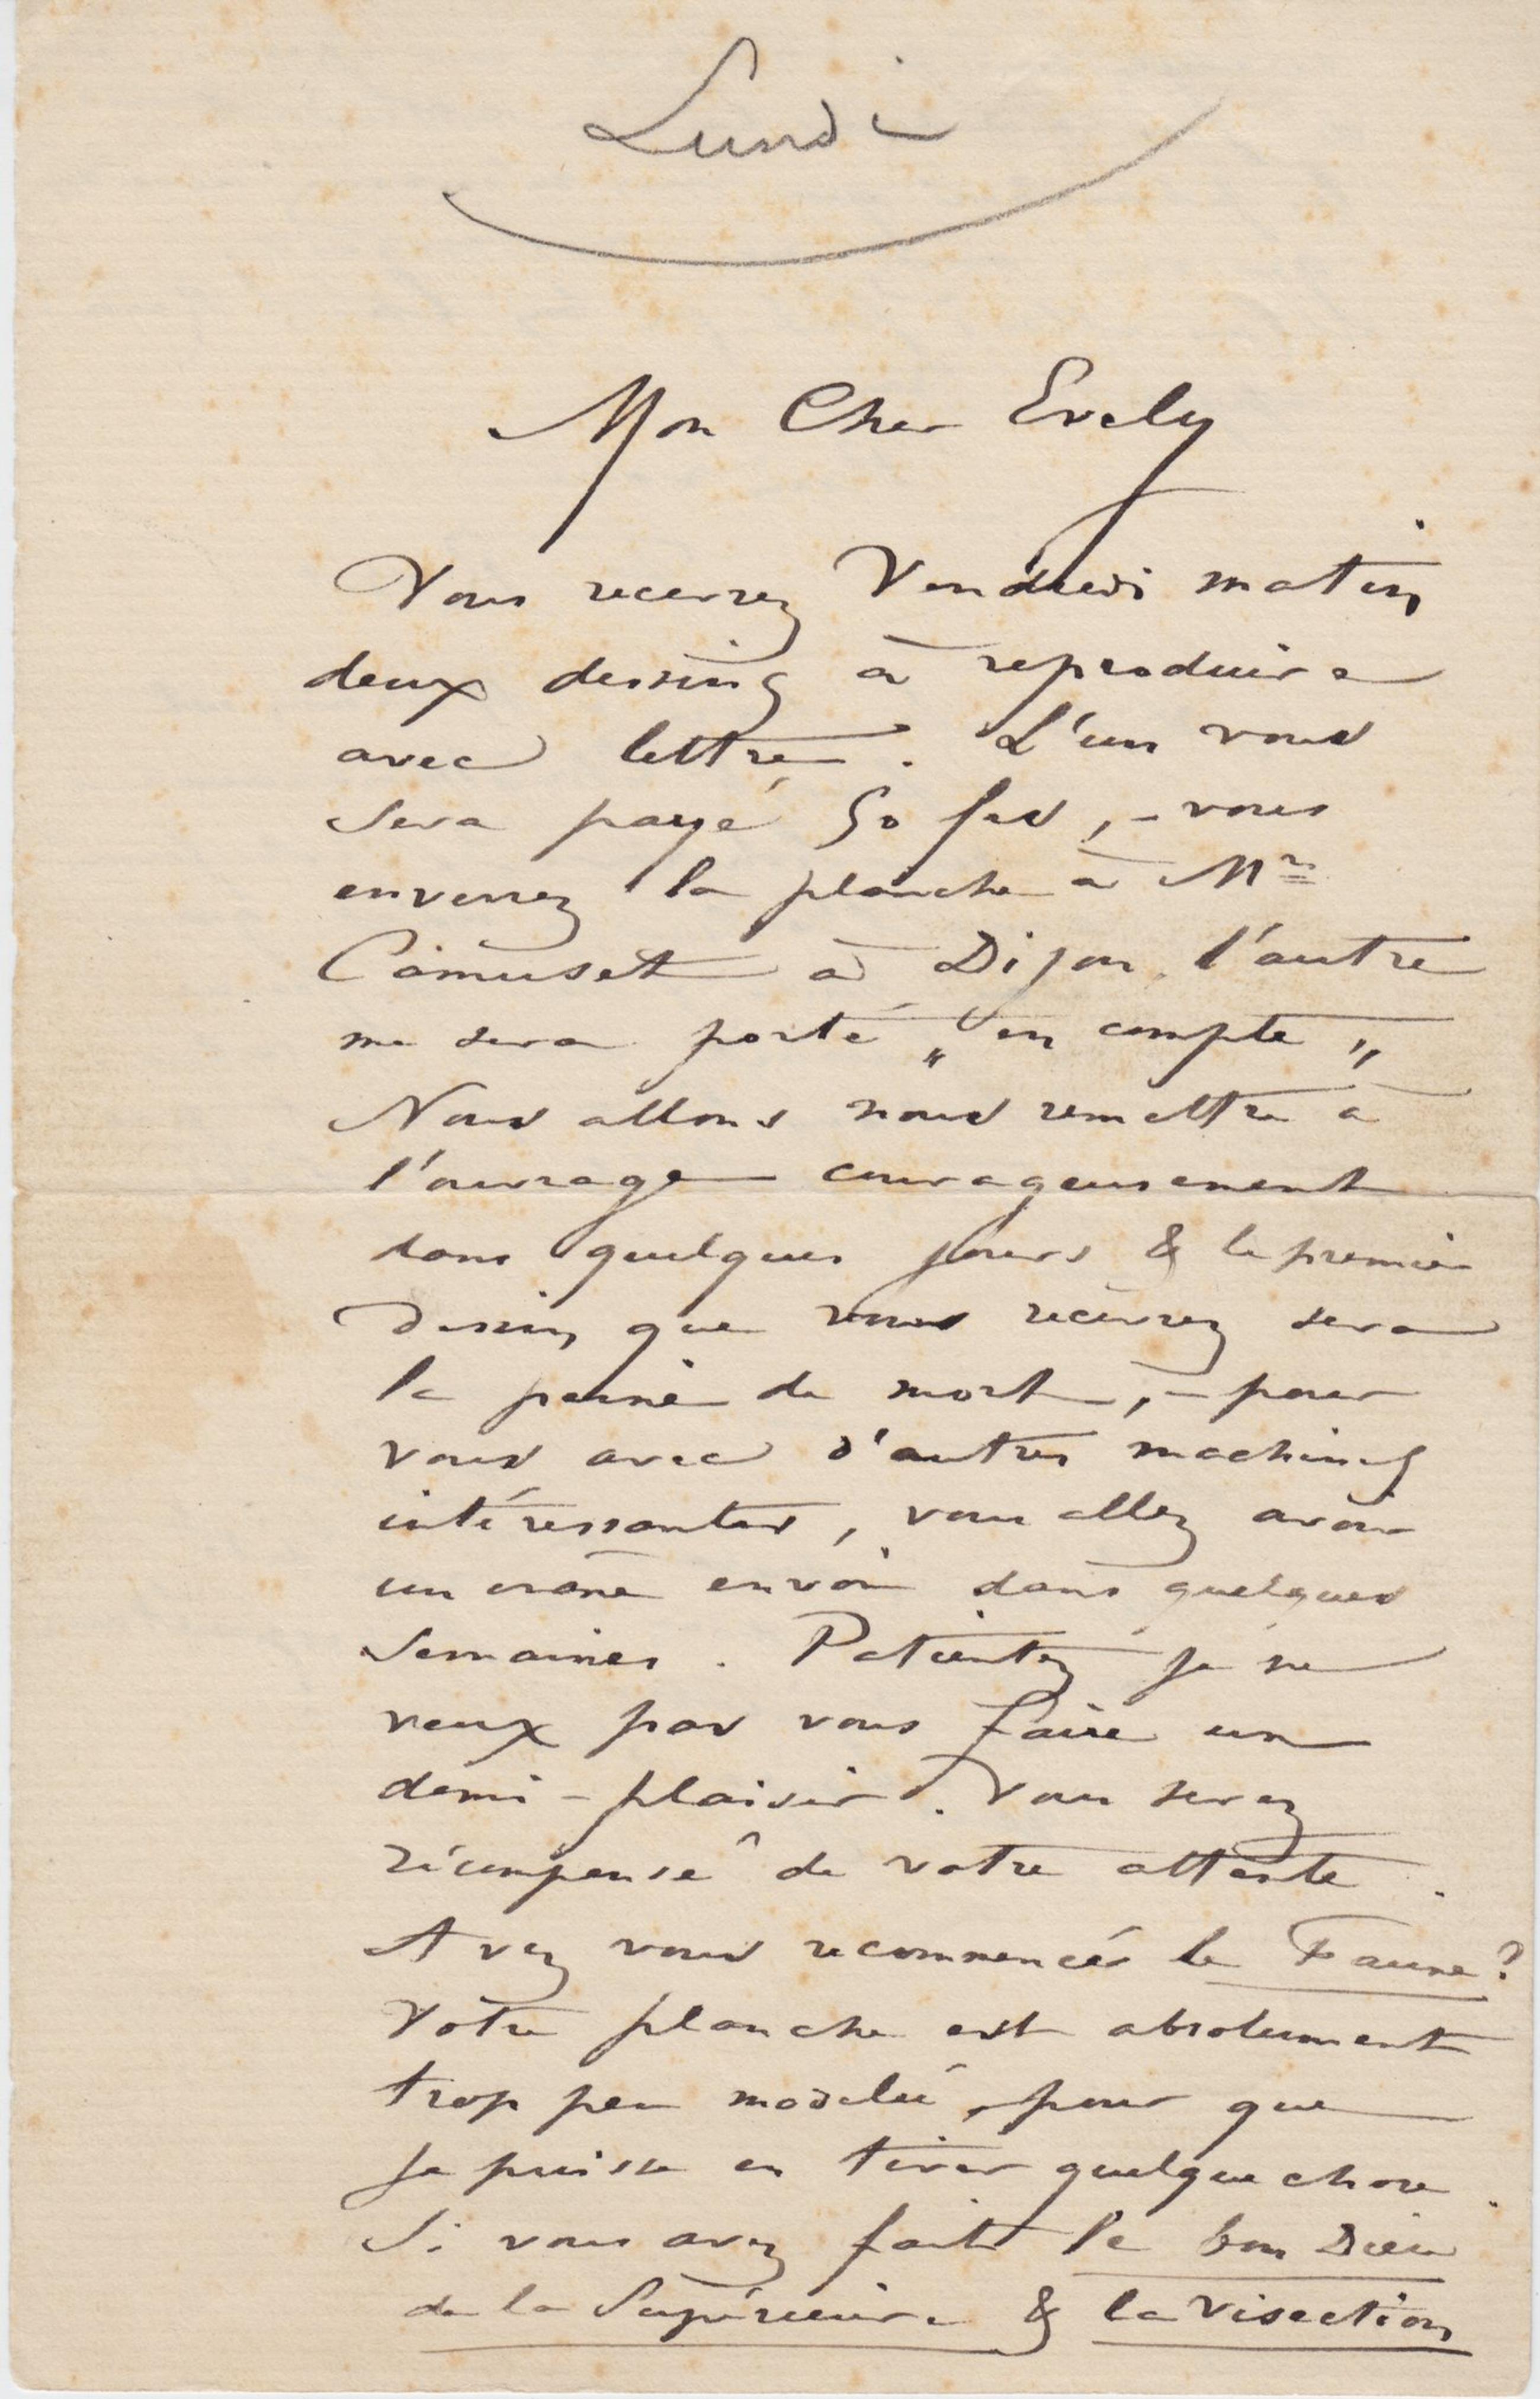 Lundi
Mon Cher Evely
Vous recevrez Vendredi matin
deux dessins à reproduire
avec lettre. L'un vous
sera payé 50 frs, – vous
enverrez la planche à Mr
Camuset à Dijon. l'autre
me sera porté „ en compte „
Nous allons nous remettre à
l'ouvrage courageusement
dans quelques jours & le premier
dessin que vous recevrez sera
la peine de mort, – pour
vous avec d'autres machines
intéressantes, vous allez avoir
un crâne envoi dans quelques
semaines. Patientez je ne
veux pas vous faire un
demi-plaisir. Vous serez
récompensé de votre attente.
Avez vous recommencés le Faune?
Votre planche est absolument
trop peu modelée, pour que
je puisse en tirer quelque chose.
Si vous avez fait le bon Dieu
de la Supérieure & la Visection